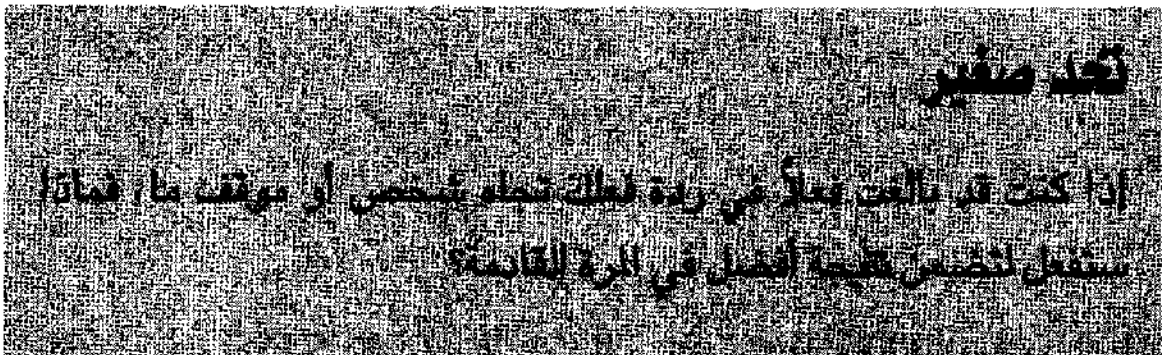 تحد صغير
إذا كنت قد بالغت فعلاً في ردة فعلك تجاه شخص أو موقف ما، فماذا
ستفعل لتضمن نتيجة أفضل في المرة القادمة؟